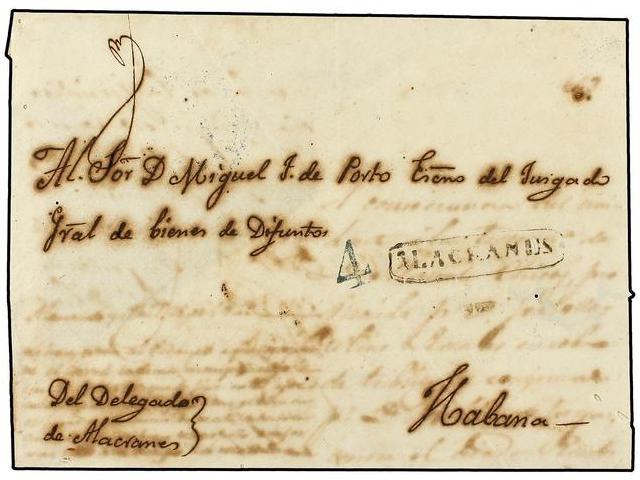 Al Sõr D Miguel J. de Porto Escño del Jusgado
Gral de bienes de Difuntos
4 ALACRANES
Del Delegado
de Alacranes
Habana